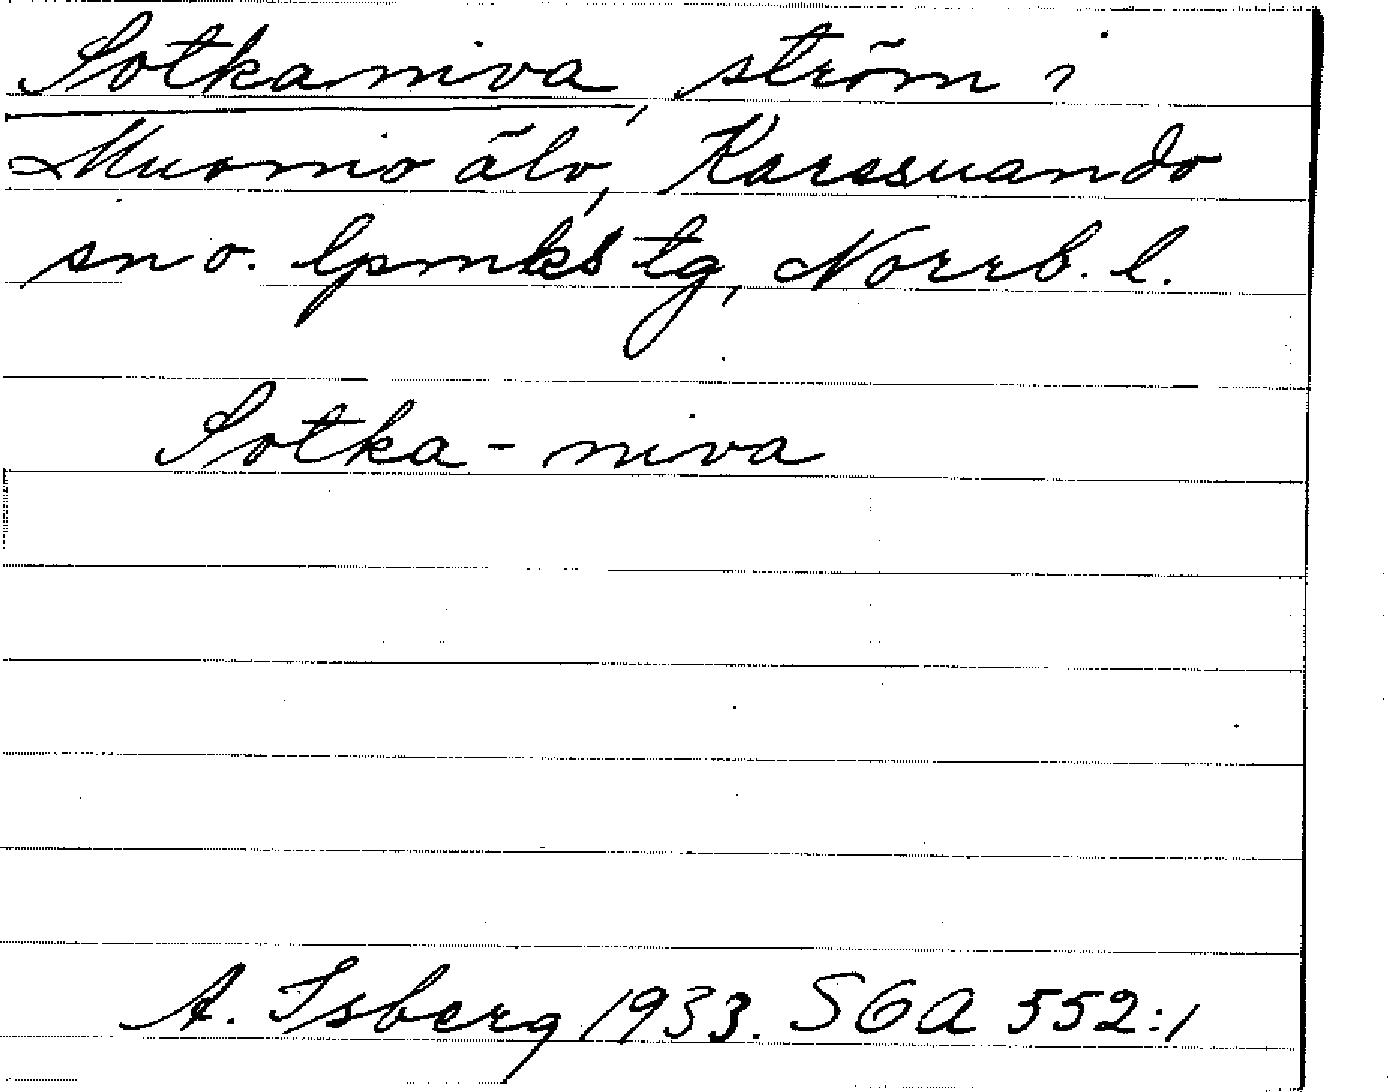 Sotkaniva, ström i
Muonio älv, Karesuando
sn o. lpmks tg, Norrb. l.
Sotka - niva
A. Isberg 1933. SGA 552:1